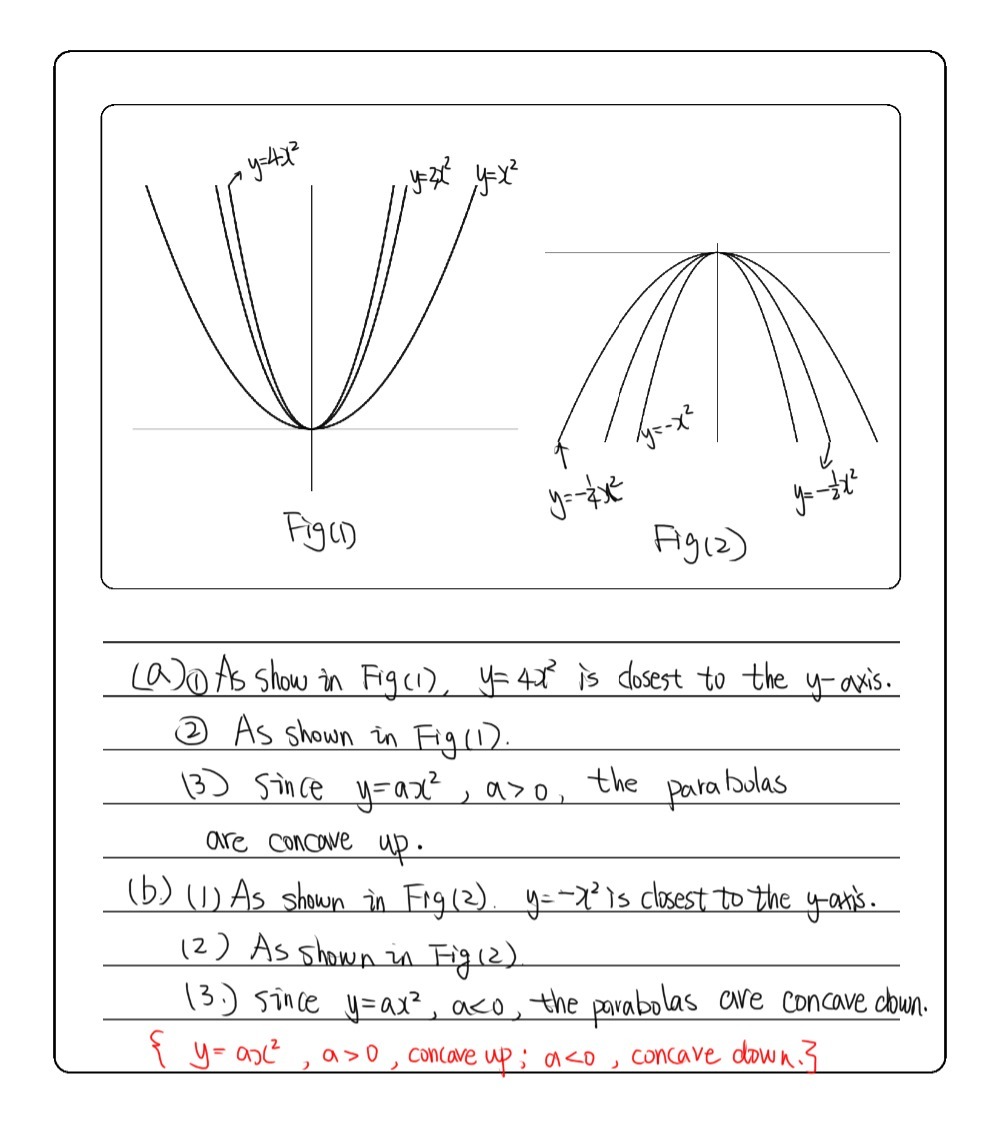 y=4x² y=3x² y=x²
y=-x²
y=-¼x² y=-½x²
Fig(1) Fig(2)
(a)① As show in Fig(1), y=4x² is closest to the y-axis.
② As shown in Fig(1).
(3) Since y=ax², a>0, the parabolas
are concave up.
(b) (1) As shown in Fig(2). y=-x² is closest to the y-axis.
(2) As shown in Fig(2)
(3.) Since y=ax², a<0, the parabolas are concave down.
{ y=ax², a>0, concave up; a<0, concave down.}